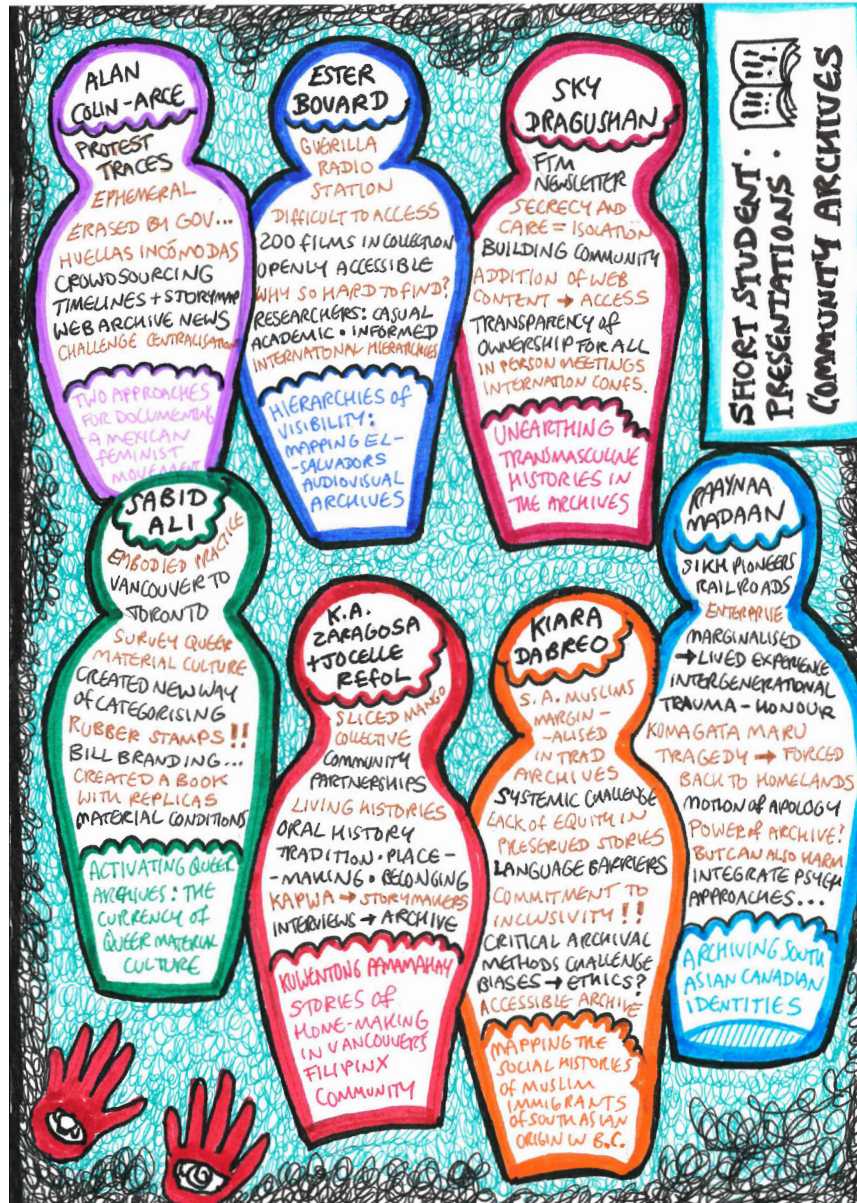 SHORT STUDENT
PRESENTATIONS:
COMMUNITY ARCHIVES
ALAN
COLIN-ARCE
PROTEST
TRACES
EPHEMERAL
ERASED BY GOV...
HUELLAS INCÓMODAS
CROWDSOURCING
TIMELINES + STORYMAP
WEB ARCHIVE NEWS
CHALLENGE CENTRALISATION
TWO APPROACHES
FOR DOCUMENTING
A MEXICAN
FEMINIST
MOVEMENT
ESTER
BOVARD
GUERILLA
RADIO
STATION
DIFFICULT TO ACCESS
200 FILMS IN COLLECTION
OPENLY ACCESSIBLE
WHY SO HARD TO FIND?
RESEARCHERS: CASUAL
ACADEMIC • INFORMED
INTERNATIONAL HIERARCHIES
HIERARCHIES OF
VISIBILITY:
MAPPING EL-
-SALVADORS
AUDIOVISUAL
ARCHIVES
SKY
DRAGUSHAN
FTM
NEWSLETTER
SECRECY AND
CARE = ISOLATION
BUILDING COMMUNITY
ADDITION OF WEB
CONTENT → ACCESS
TRANSPARENCY OF
OWNERSHIP FOR ALL
IN PERSON MEETINGS
INTERNATION CONFS.
UNEARTHING
TRANSMASCULINE
HISTORIES IN
THE ARCHIVES
SABID
ALI
EMBODIED PRACTICE
VANCOUVER TO
TORONTO
SURVEY QUEER
MATERIAL CULTURE
CREATED NEW WAY
OF CATEGORISING
RUBBER STAMPS!!
BILL BRANDING...
CREATED A BOOK
WITH REPLICAS
MATERIAL CONDITIONS
ACTIVATING QUEER
ARCHIVES: THE
CURRENCY OF
QUEER MATERIAL
CULTURE
K.A.
ZARAGOSA
+ JOCELLE
REFOL
SLICED MANGO
COLLECTIVE
COMMUNITY
PARTNERSHIPS
LIVING HISTORIES
ORAL HISTORY
TRADITION • PLACE-
-MAKING • BELONGING
KAPWA → STORYMAKERS
INTERVIEWS → ARCHIVE
KUWENTONG PAMAMAHAY
STORIES OF
HOME-MAKING
IN VANCOUVERS
FILIPINX
COMMUNITY
KIARA
DABREO
S.A. MUSLIMS
MARGIN-
-ALISED
IN TRAD
ARCHIVES
SYSTEMIC CHALLENGE
LACK OF EQUITY IN
PRESERVED STORIES
LANGUAGE BARRIERS
COMMITMENT TO
INCLUSIVITY!!
CRITICAL ARCHIVAL
METHODS CHALLENGE
BIASES → ETHICS?
ACCESSIBLE ARCHIVE
MAPPING THE
SOCIAL HISTORIES
OF MUSLIM
IMMIGRANTS
OF SOUTH ASIAN
ORIGIN IN B.C.
RAAYNAA
MADAAN
SIKH PIONEERS
RAILROADS
ENTERPRISE
MARGINALISED
→ LIVED EXPERIENCE
INTERGENERATIONAL
TRAUMA - HONOUR
KOMAGATA MARU
TRAGEDY → FORCED
BACK TO HOMELANDS
MOTION OF APOLOGY
POWER OF ARCHIVE?
BUT CAN ALSO HARM
INTEGRATE PSYCH
APPROACHES...
ARCHIVING SOUTH
ASIAN CANADIAN
IDENTITIES